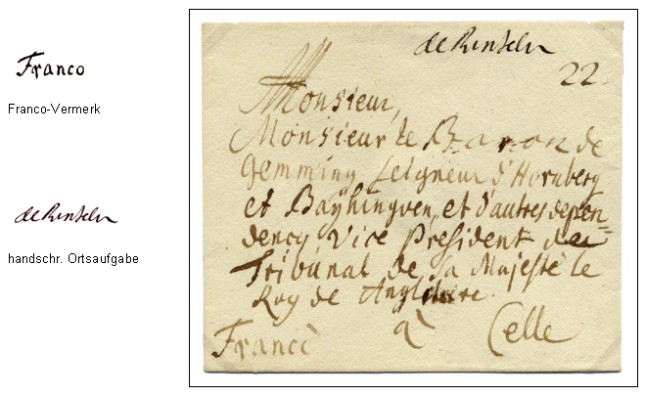 Franco
Franco-Vermerk
de Rinteln
handschr. Ortsaufgabe
de Rinteln
22
Monsieur,
Monsieur le Baron de
Gemming Seigneur d'Hornberg
et Bayhingven, et d'autres depen=
dency Vice President de
Tribunal de Sa Majesté le
Roy de Angleterre.
à Celle
Franco